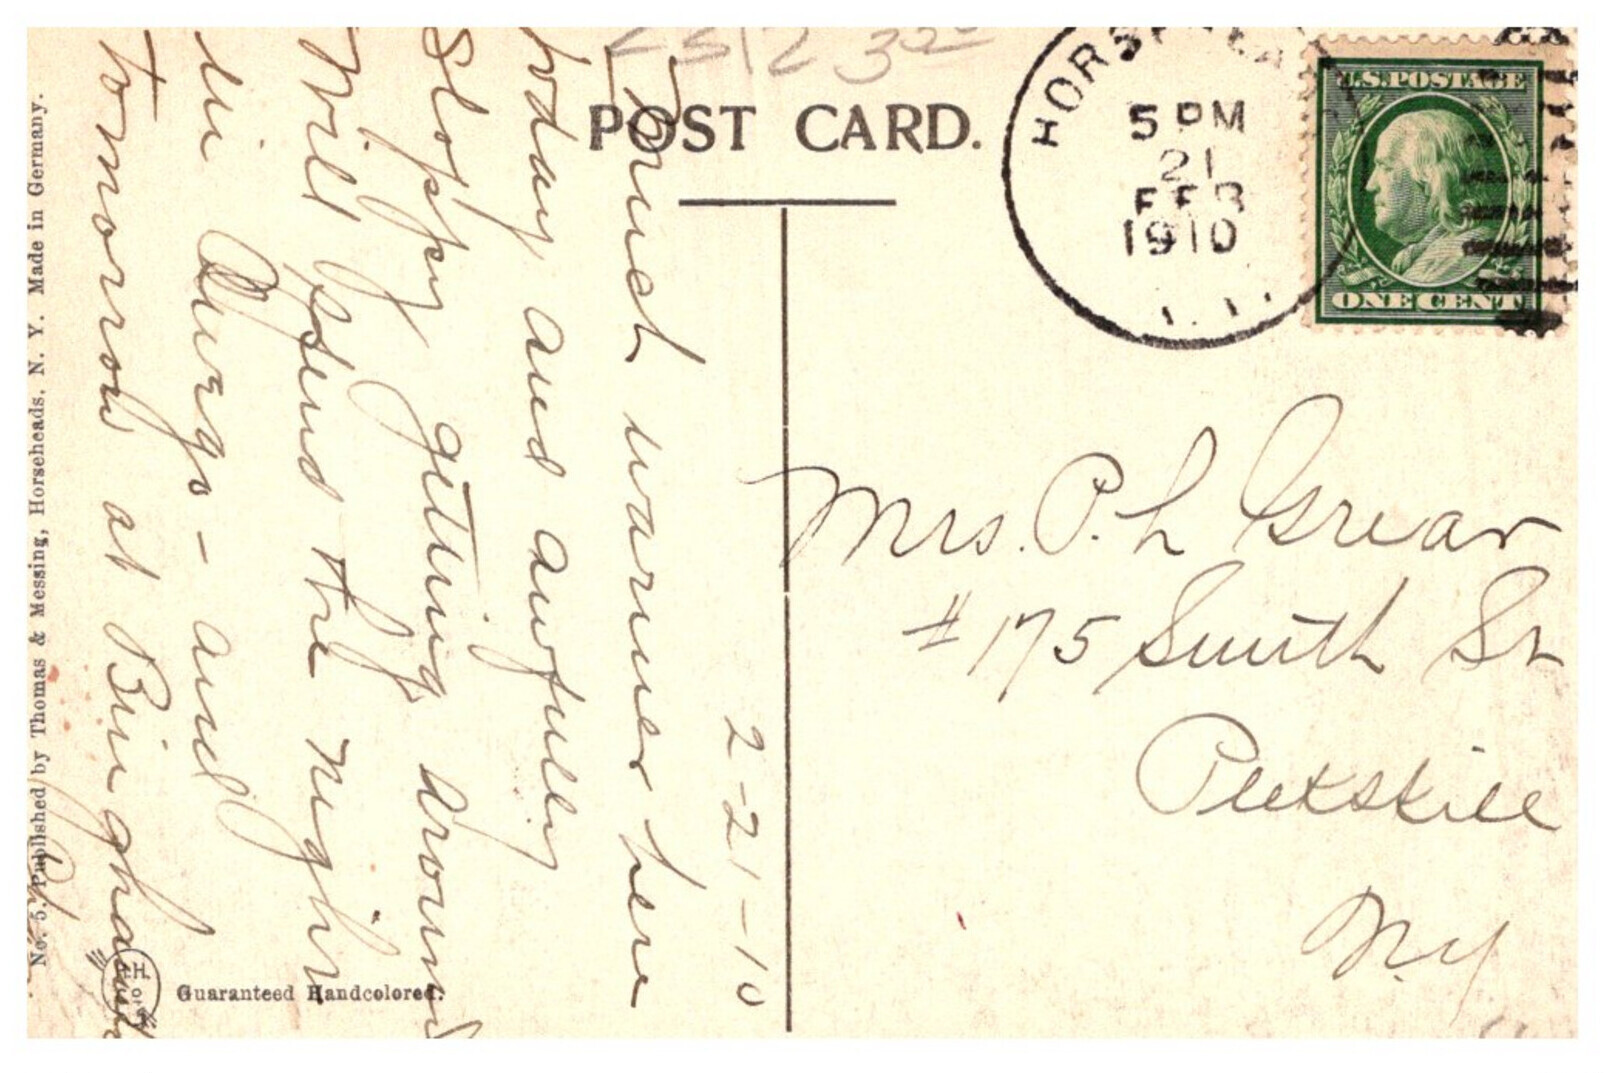 POST CARD.
HORSEHEADS
5 PM
21
FEB
1910
U.S. POSTAGE
ONE CENT
2-21-10
Much warmer here
today and awfully
sloppy getting around
Will spend the night
in Owego - and
tomorrow at Binghamton
P.
Mrs. P. L Grear
#175 Smith St
Peekskill
N.Y
No. 5. Published by Thomas & Messing, Horseheads, N. Y. Made in Germany.
Guaranteed Handcolored.